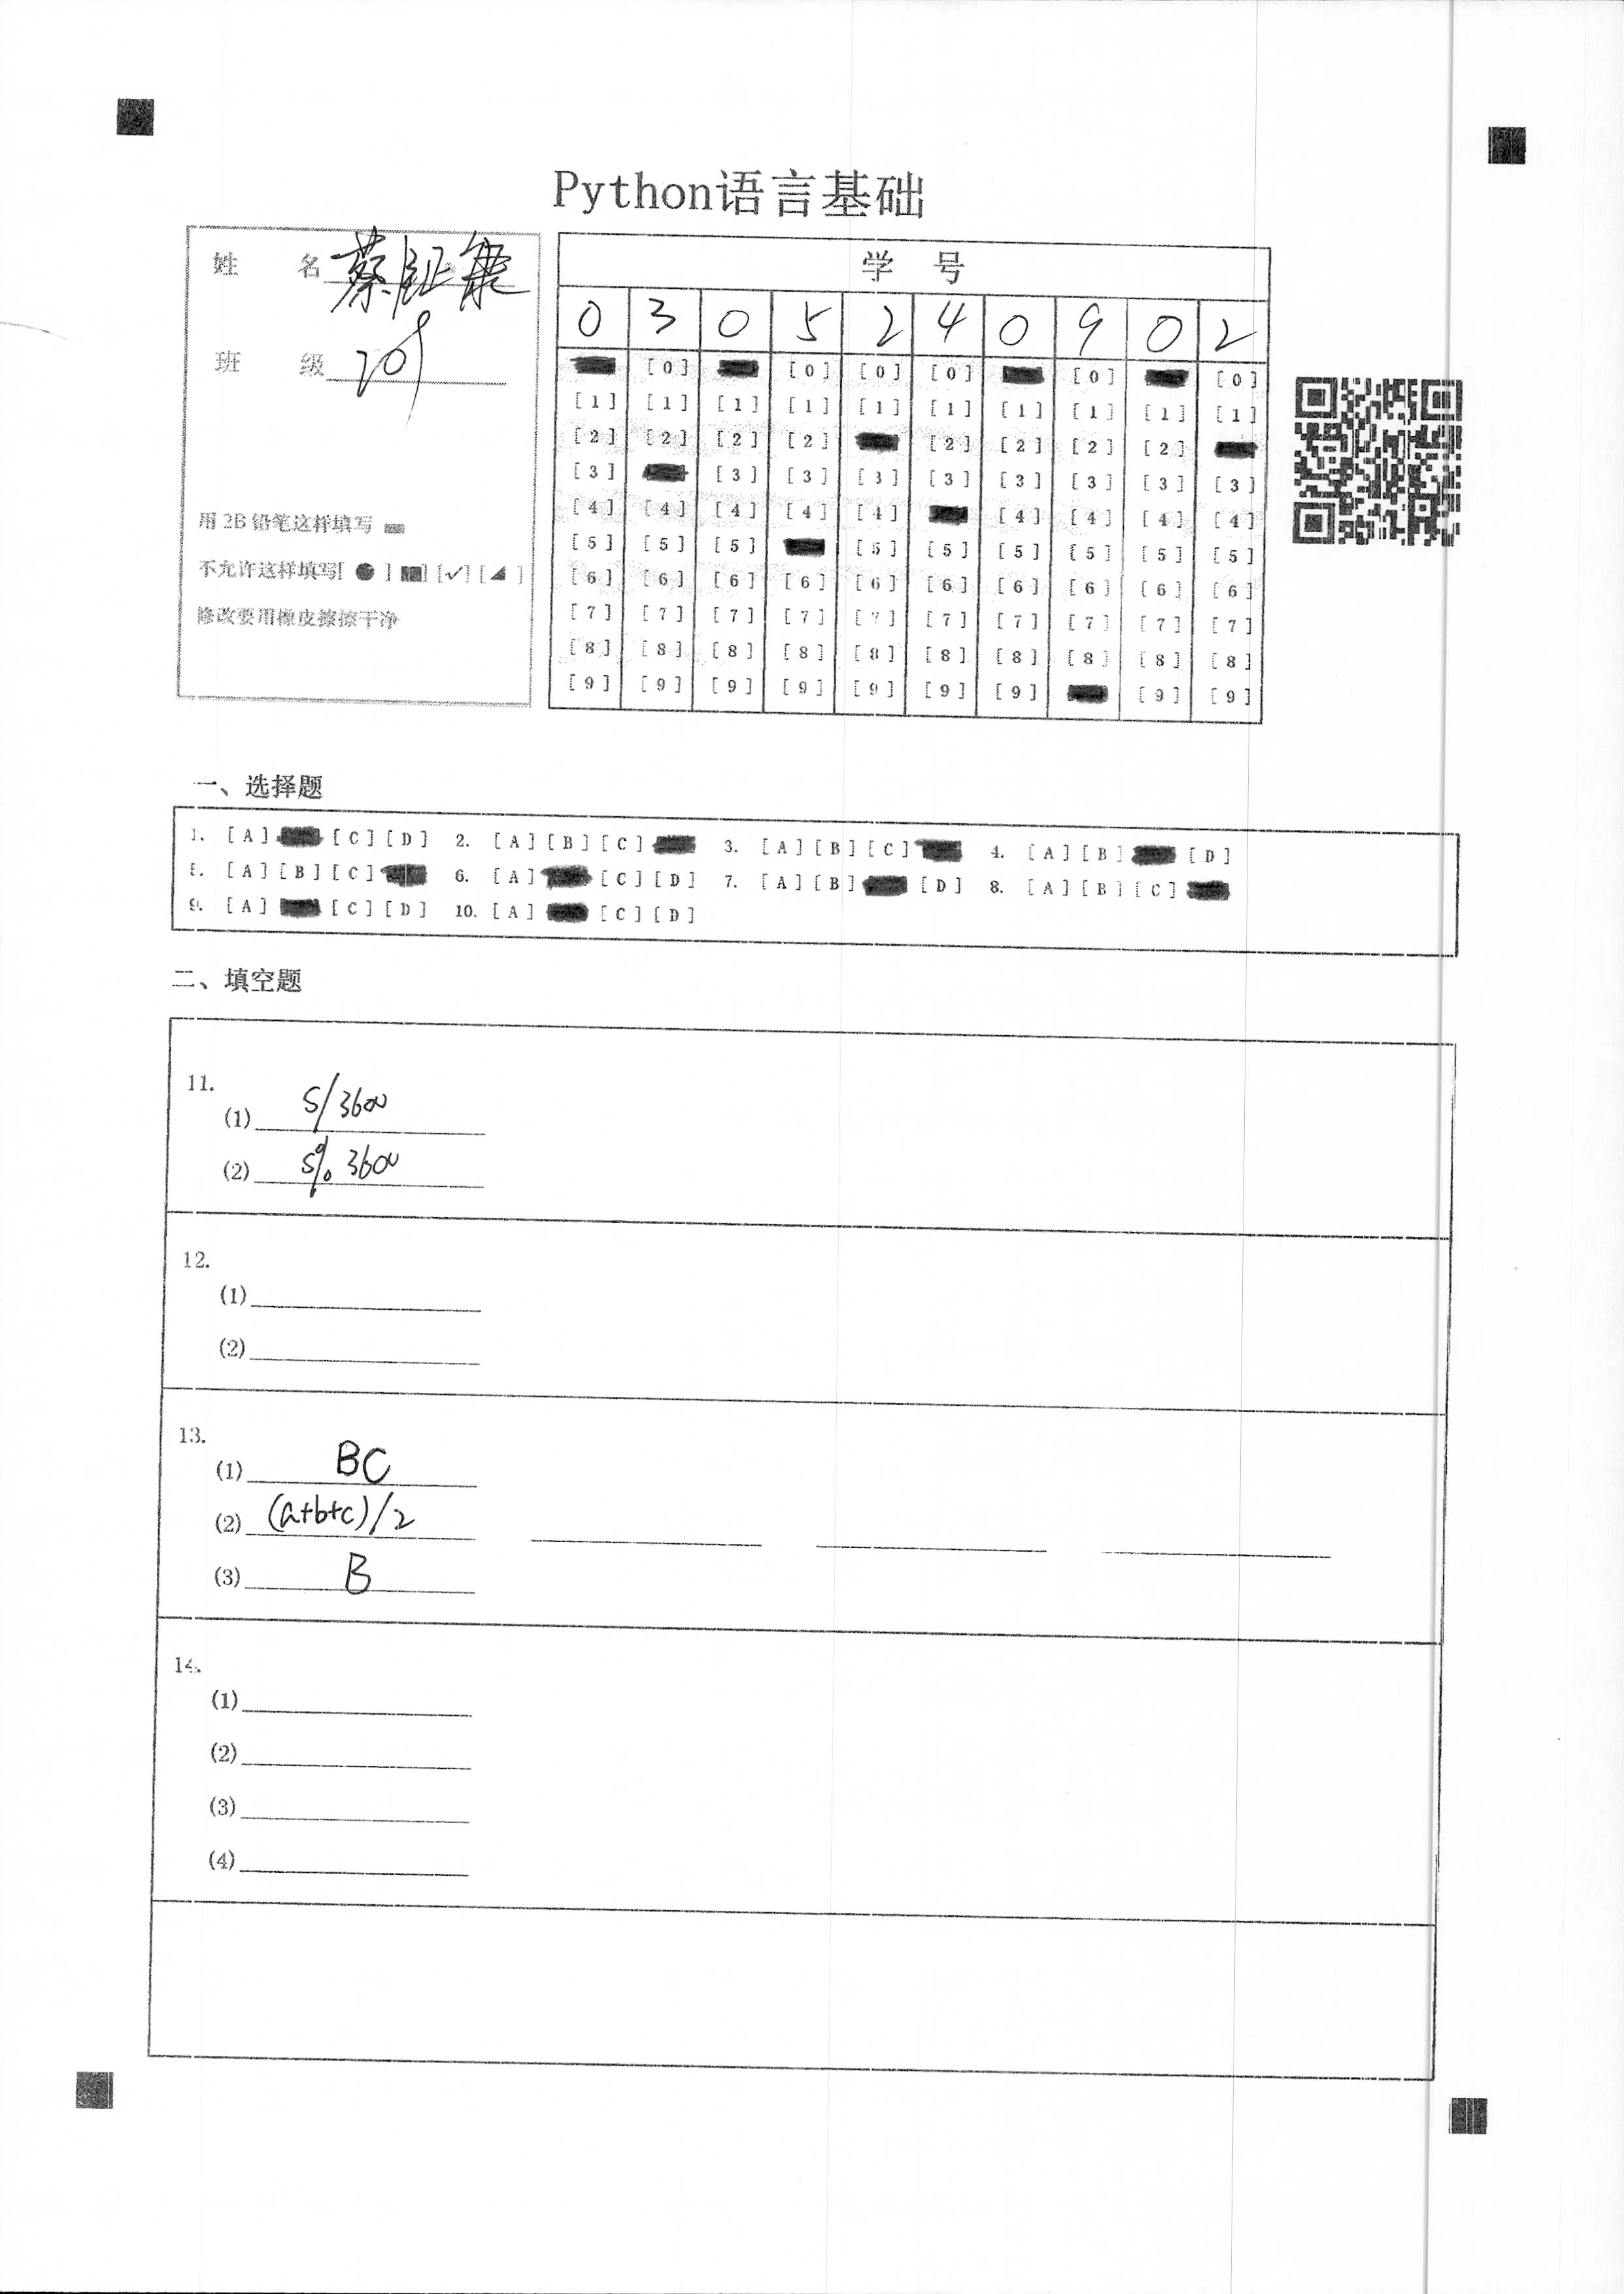 Python语言基础
姓 名 蔡 钲 康
班 级 209
用 2B 铅笔这样填写
不允许这样填写[ ● ] [■] [✓] [◢ ]
修改要用橡皮擦擦干净
学 号
0 3 0 5 2 4 0 9 0 2
[0] [0] [0] [0] [0] [0]
[1] [1] [1] [1] [1] [1] [1] [1] [1] [1]
[2] [2] [2] [2] [2] [2] [2] [2]
[3] [3] [3] [3] [3] [3] [3] [3] [3]
[4] [4] [4] [4] [4] [4] [4] [4] [4]
[5] [5] [5] [5] [5] [5] [5] [5] [5]
[6] [6] [6] [6] [6] [6] [6] [6] [6] [6]
[7] [7] [7] [7] [7] [7] [7] [7] [7] [7]
[8] [8] [8] [8] [8] [8] [8] [8] [8] [8]
[9] [9] [9] [9] [9] [9] [9] [9] [9]
一、选择题
1. [A] [C] [D] 2. [A] [B] [C] 3. [A] [B] [C] 4. [A] [B] [D]
5. [A] [B] [C] 6. [A] [C] [D] 7. [A] [B] [D] 8. [A] [B] [C]
9. [A] [C] [D] 10. [A] [C] [D]
二、填空题
11.
(1) S/3600
(2) S% 3600
12.
(1)
(2)
13.
(1) BC
(2) (a+b+c)/2
(3) B
14.
(1)
(2)
(3)
(4)